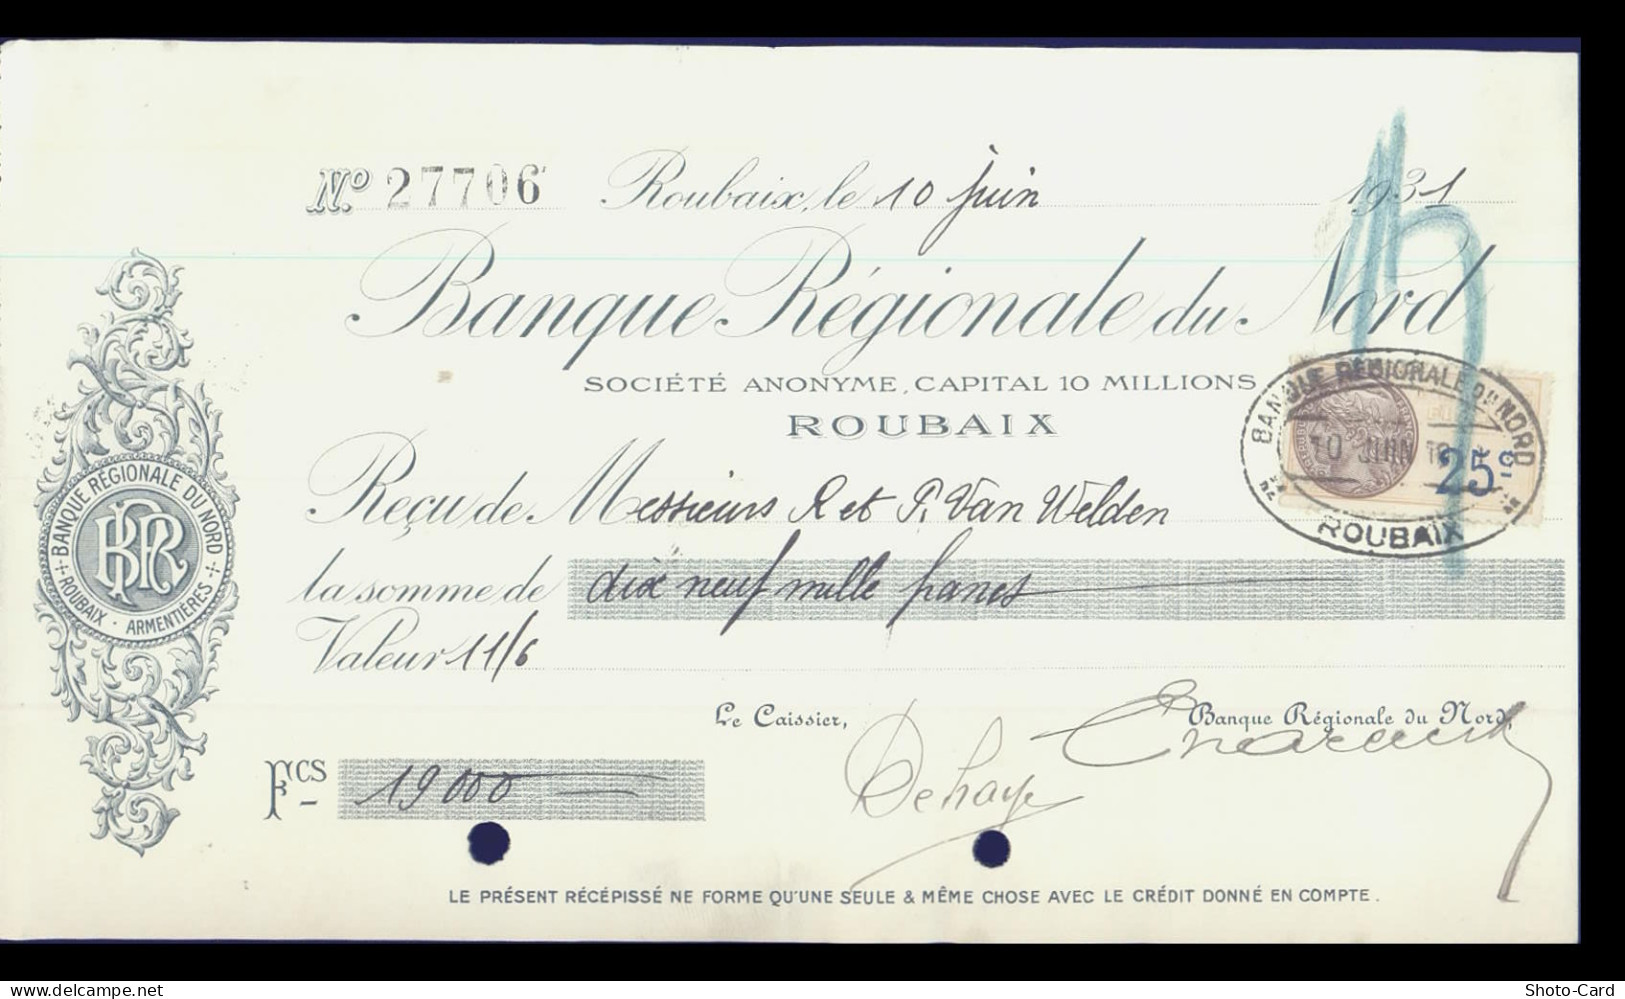 Nº 27706 Roubaix, le 10 juin 1931
Banque Régionale du Nord
SOCIÉTÉ ANONYME, CAPITAL 10 MILLIONS
ROUBAIX
Reçu de Messieurs R et P. Van Welden
la somme de dix neuf mille francs
Valeur 11/6
Le Caissier, Banque Régionale du Nord,
Dehaye
Fcs 19 000
LE PRÉSENT RÉCÉPISSÉ NE FORME QU'UNE SEULE & MÊME CHOSE AVEC LE CRÉDIT DONNÉ EN COMPTE.
BANQUE RÉGIONALE DU NORD
BRN
ROUBAIX · ARMENTIÈRES
BANQUE REGIONALE DU NORD
10 JUIN
25c
ROUBAIX
delcampe.net
Shoto-Card